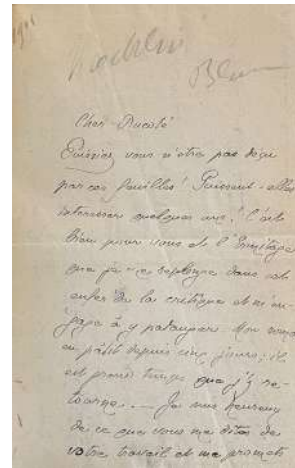 Koechlin
Blum
Cher Ducoté
Puissiez vous n'être pas déçu
par ces feuilles! Puissent-elles
intéresser quelques uns! C'est
bien pour vous et l'Ermitage
que je me replonge dans cet
enfer de la critique et m'en-
gage à y patauger. Mon roman
en pâtit depuis cinq jours; il
est grand temps que j'y re-
tourne... — Je suis heureux
de ce que vous me dites de
votre travail et me promets